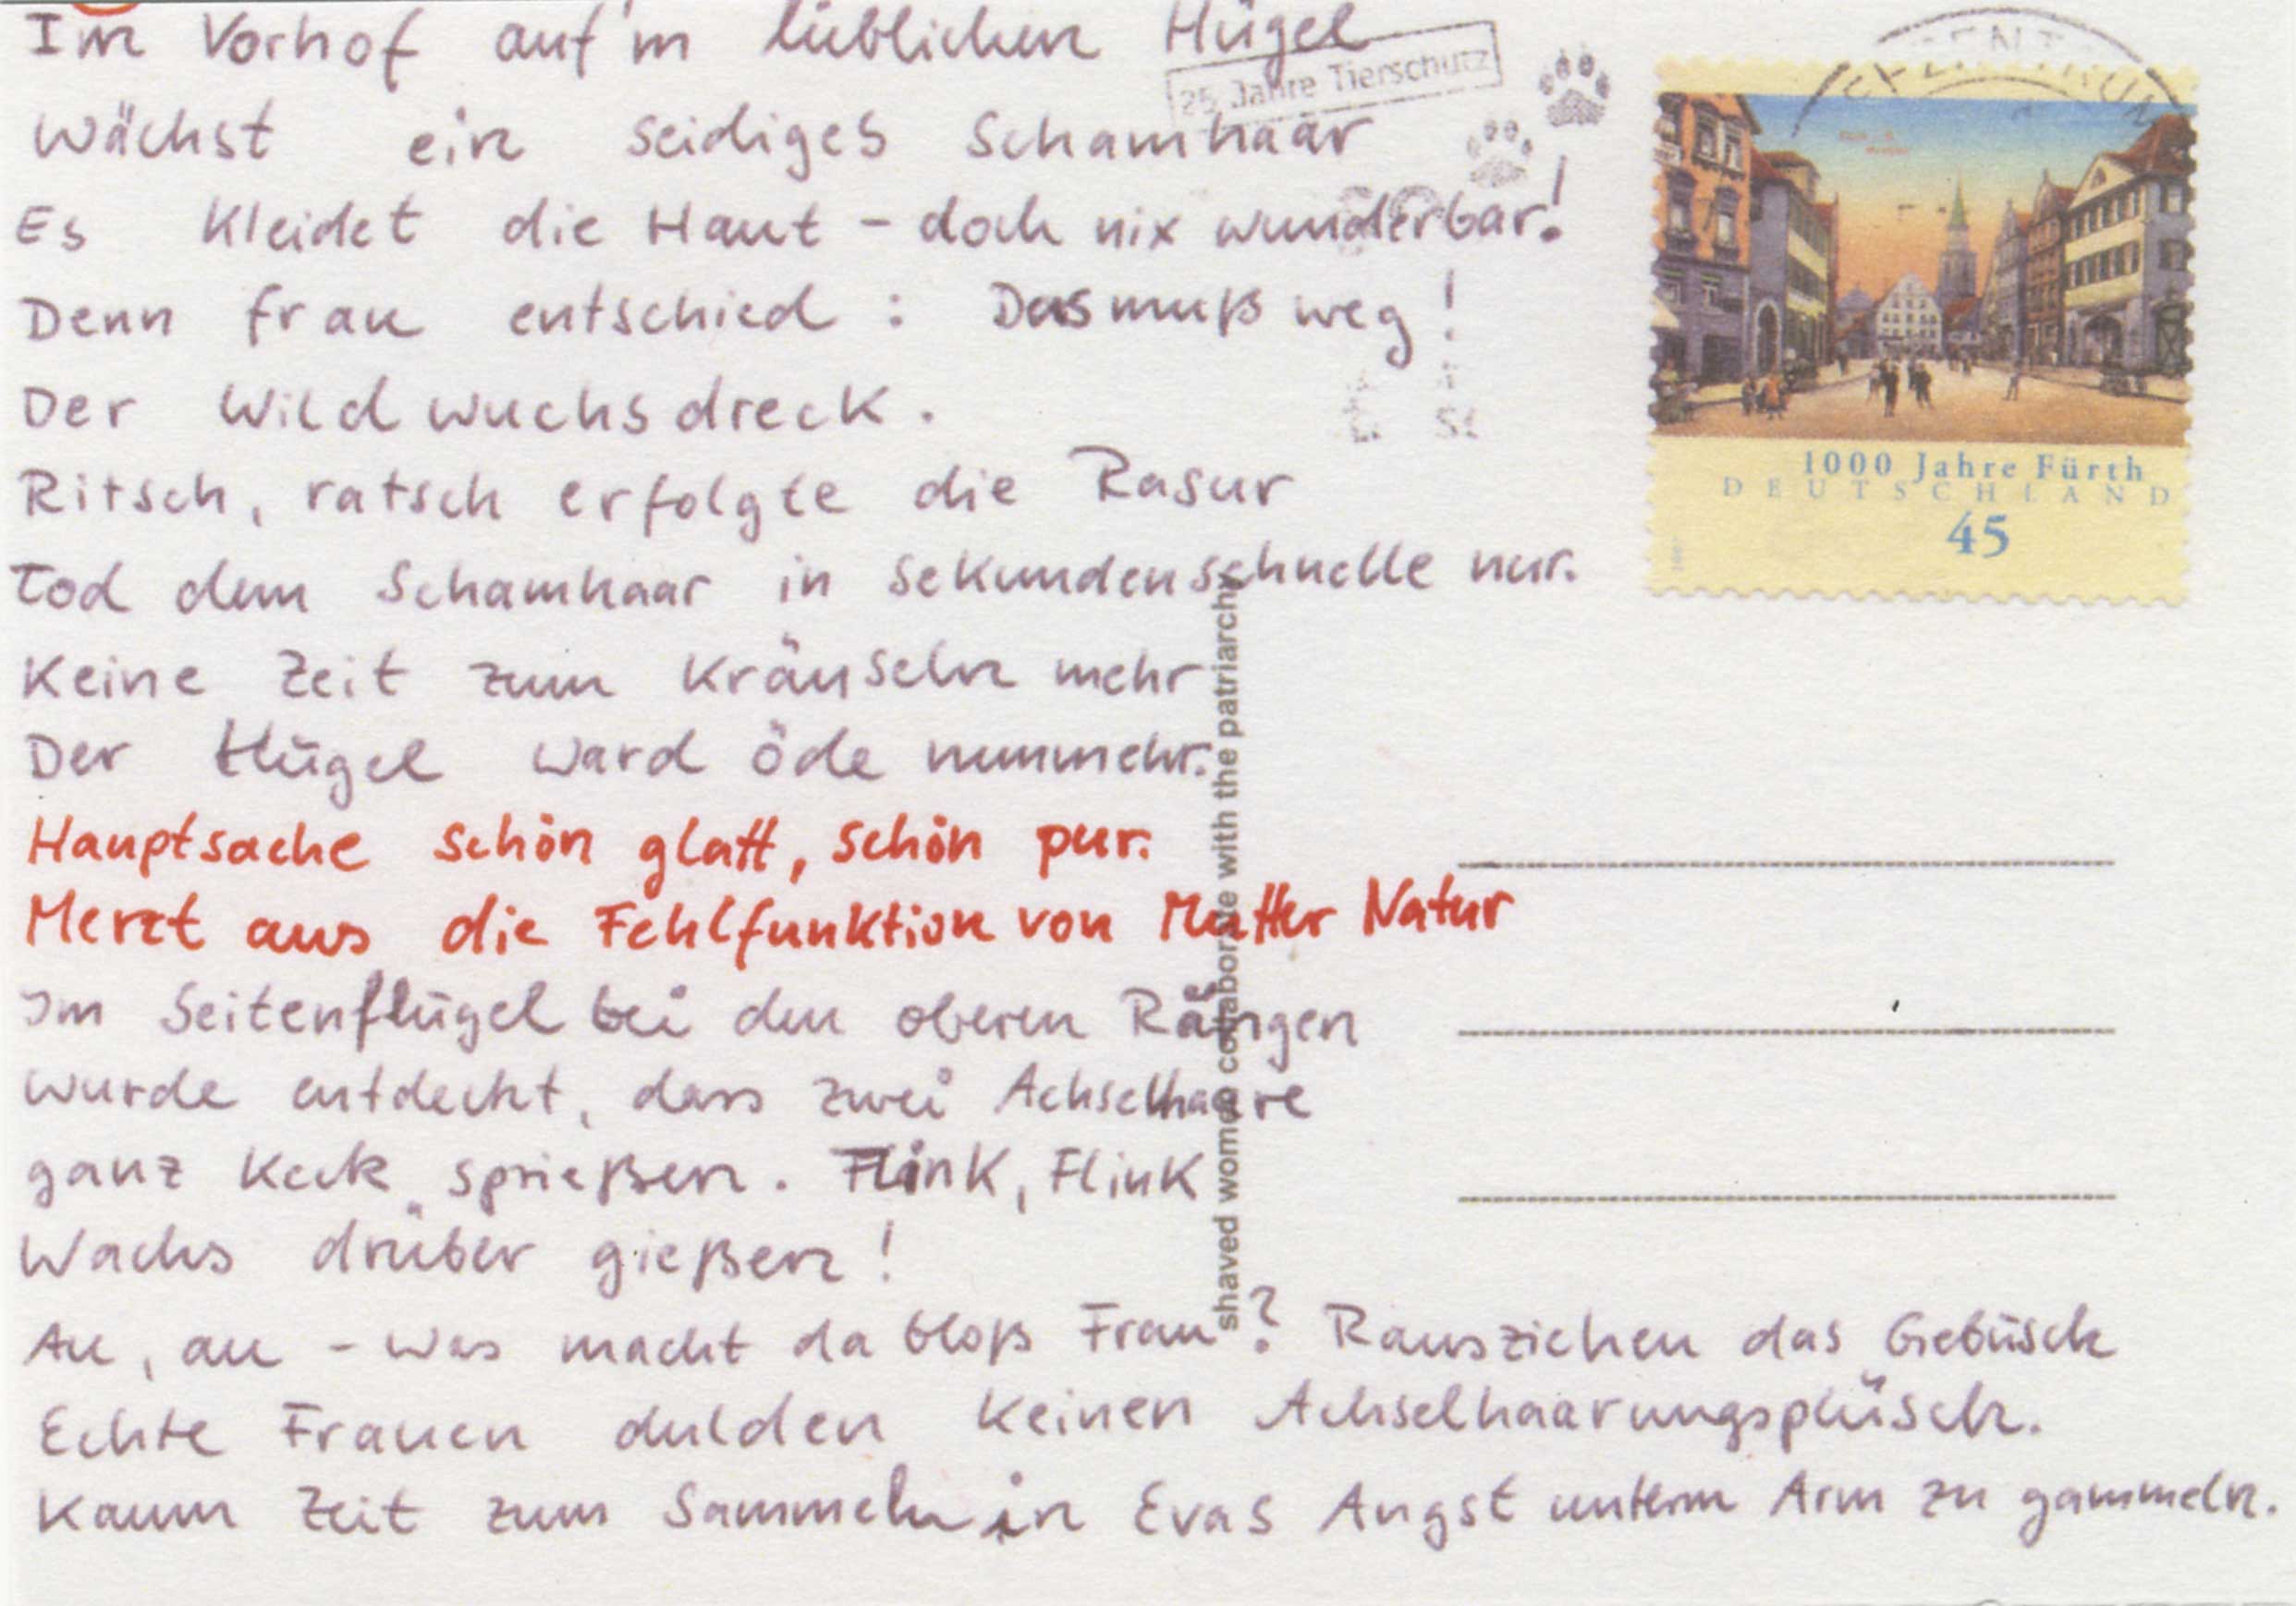 Im Vorhof auf'm lieblichen Hügel
25 Jahre Tierschutz
Wächst ein seidiges Schamhaar
Es kleidet die Haut - doch nix wunderbar!
Denn frau entschied : Das muß weg!
Der Wildwuchsdreck.
Ritsch, ratsch erfolgte die Rasur
Tod dem Schamhaar in Sekundenschnelle nur.
Keine Zeit zum Kräuseln mehr
Der Hügel ward öde nunmehr.
Hauptsache schön glatt, schön pur.
Merzt aus die Fehlfunktion von Mutter Natur
Im Seitenflügel bei den oberen Rängen
wurde entdeckt, dass zwei Achselhaare
ganz keck sprießen. Flink, Flink
Wachs drüber gießen!
Au, au - was macht da bloß Frau? Rausziehen das Gebüsch
Echte Frauen dulden keinen Achselhaarungsplüsch.
Kaum Zeit zum Sammeln in Evas Angst unterm Arm zu gammeln.
shaved women collaborate with the patriarchy
1000 Jahre Fürth
DEUTSCHLAND
45